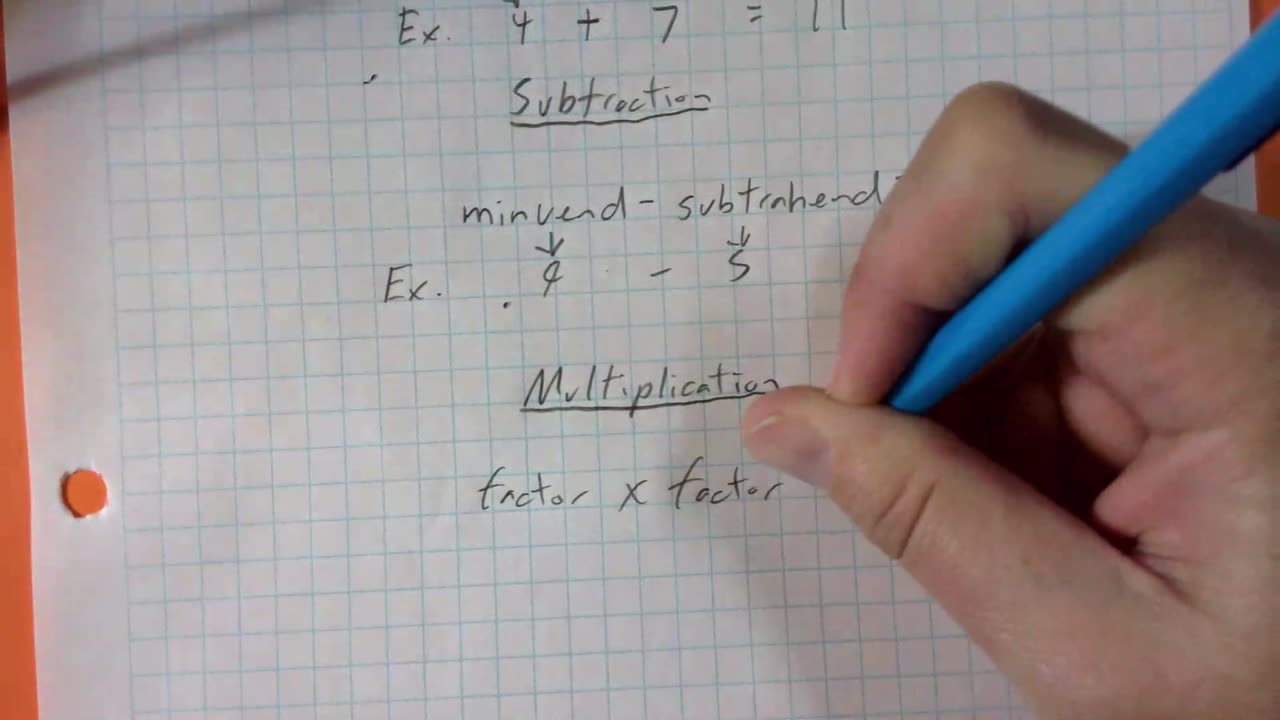 Ex. 4 + 7 = 11
Subtraction
minuend - subtrahend
Ex. 9 - 5
Multiplication
factor x factor